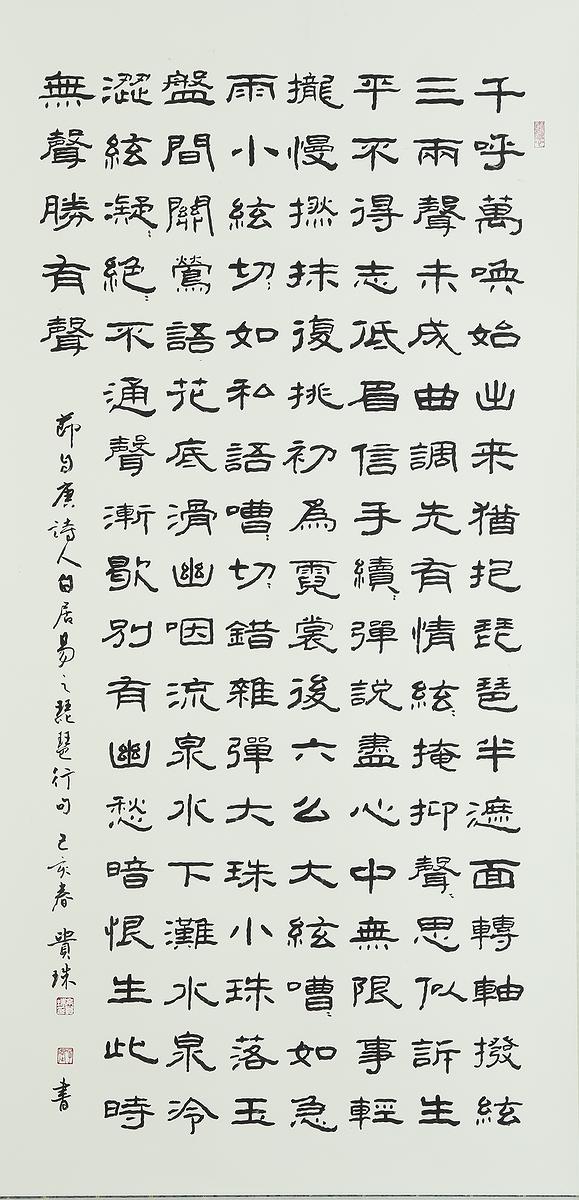 千呼萬喚始出来猶抱琵琶半遮面轉軸撥絃
三兩聲未成曲調先有情絃〻掩抑聲〻思似訴生
平不得志低眉信手續〻彈說盡心中無限事輕
攏慢撚抹復挑初為霓裳後六么大絃嘈〻如急
雨小絃切〻如私語嘈〻切〻錯雜彈大珠小珠落玉
盤間關鶯語花底滑幽咽流泉水下灘水泉冷
澀絃凝〻絕〻不通聲漸歇別有幽愁暗恨生此時
無聲勝有聲
節句唐詩人白居易之琵琶行句 己亥春 貴珠 書